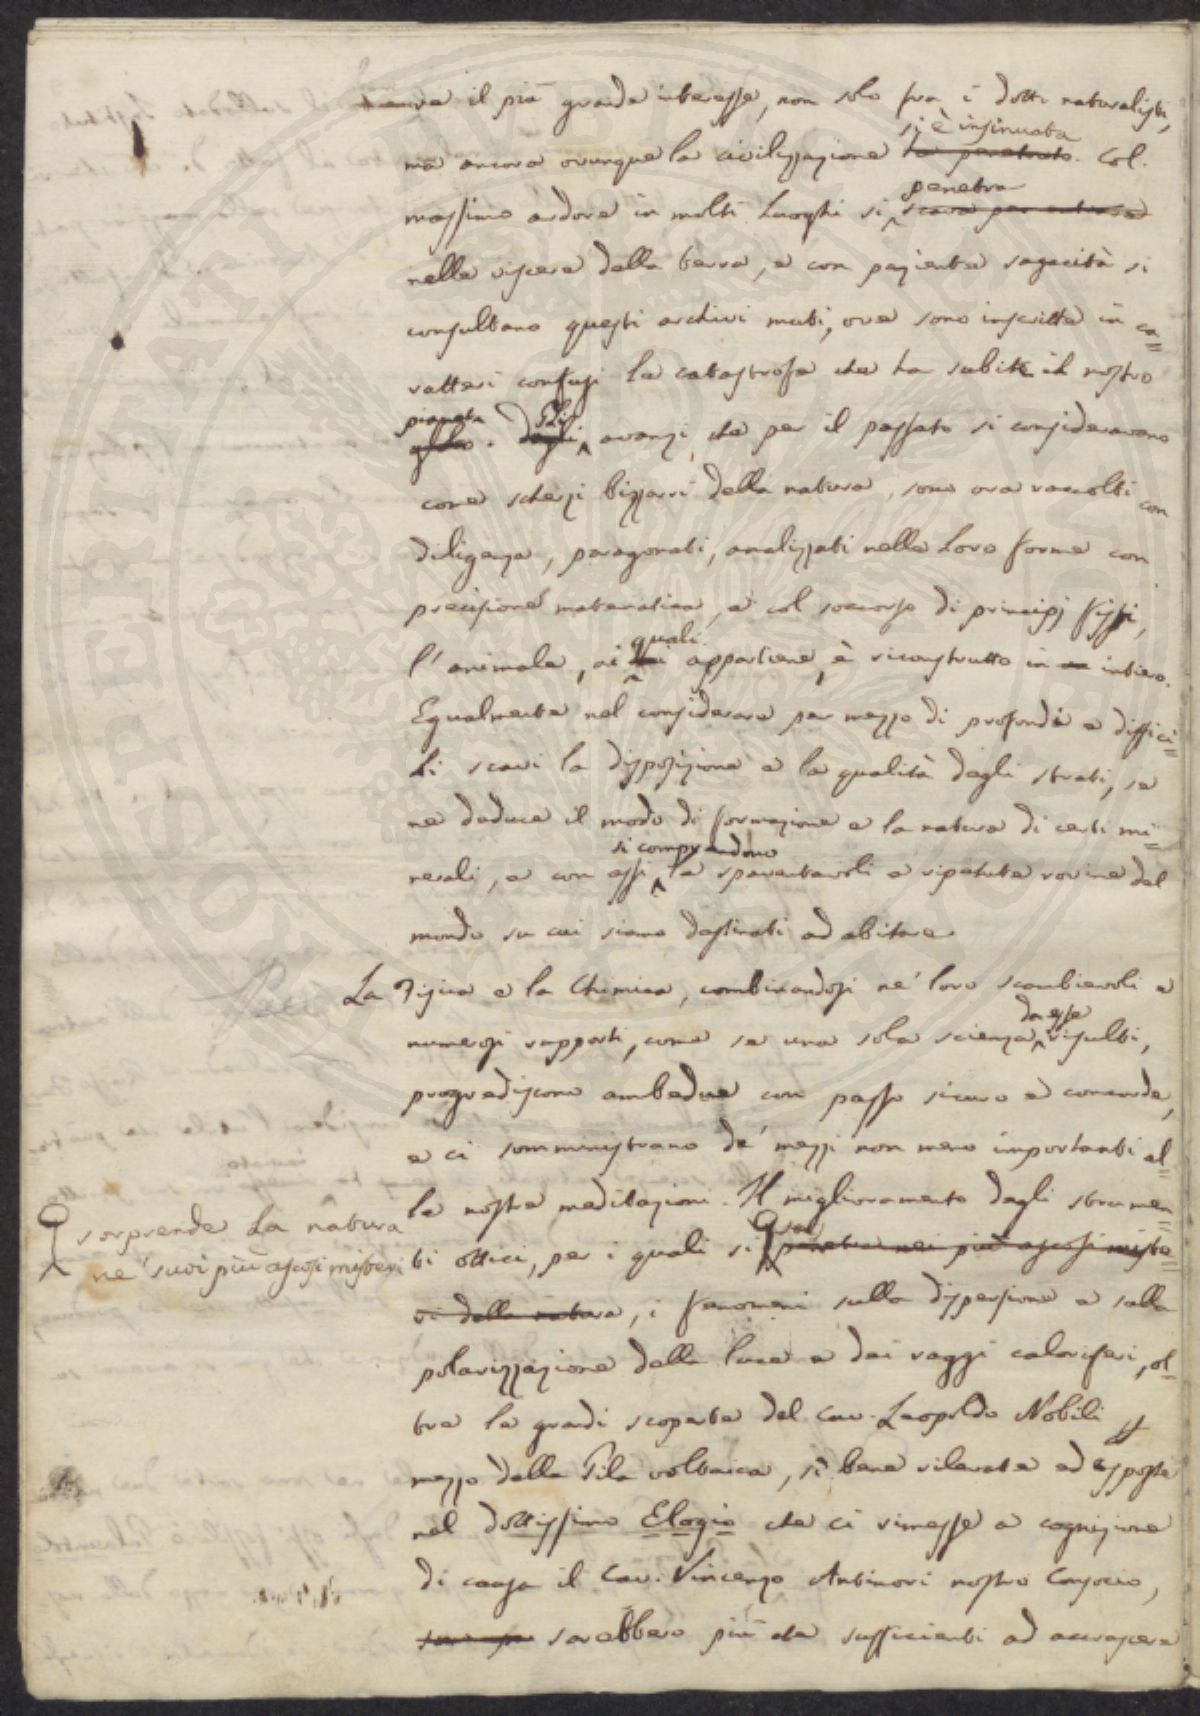 il più grande interesse, non solo fra i dotti naturalisti,
si è insinuata
ma ancora ovunque la civilizzazione ha penetrato. Col
penetra
massimo ardore in molti Luoghi si scava per entrare
nelle viscere della terra, e con paziente sagacità si
consultano questi archivi muti, ove sono inscritte in ca=
ratteri confusi le catastrofe che ha subite il nostro
pianeta Gli
globo. avanzi, che per il passato si consideravano
come scherzi bizzarri della natura, sono ora raccolti con
diligenza, paragonati, analizzati nelle Loro forme con
precisione matematica, e col soccorso di principj fissi,
quali
l'animale, ai cui appartiene, è ricostrutto in intiero.
Egualmente nel considerare per mezzo di profondi e diffici=
li scavi la disposizione e la qualità degli strati, se
ne deduce il modo di formazione e la natura di certi mi=
si comprendono
nerali, e con essi le spaventevoli e ripetute rovine del
mondo su cui siamo destinati ad abitare.
La Fisica e la Chimica, combinandosi ne' loro scambievoli e
da esse
numerosi rapporti, come se una sola scienza risulti,
progrediscono ambedue con passo sicuro e concorde,
e ci somministrano de' mezzi non meno importanti al=
le nostre meditazioni. Il miglioramento degli strumen=
sorprende La natura
ne' suoi più ascosi misteri
ti ottici, per i quali si penetra nei più ascosi miste=
ri della natura, i fenomeni sulla dispersione e sulla
polarizzazione della luce e dei raggi caloriferi, ol=
tre le grandi scoperte del Cav. Leopoldo Nobili
mezzo della Pila voltaica, sì bene rilevate ed esposte
nel dottissimo Elogio che ci rimesse a cognizione
di causa il Cav. Vincenzo Antinori nostro Consocio,
sarebbero più che sufficienti ad accrescere